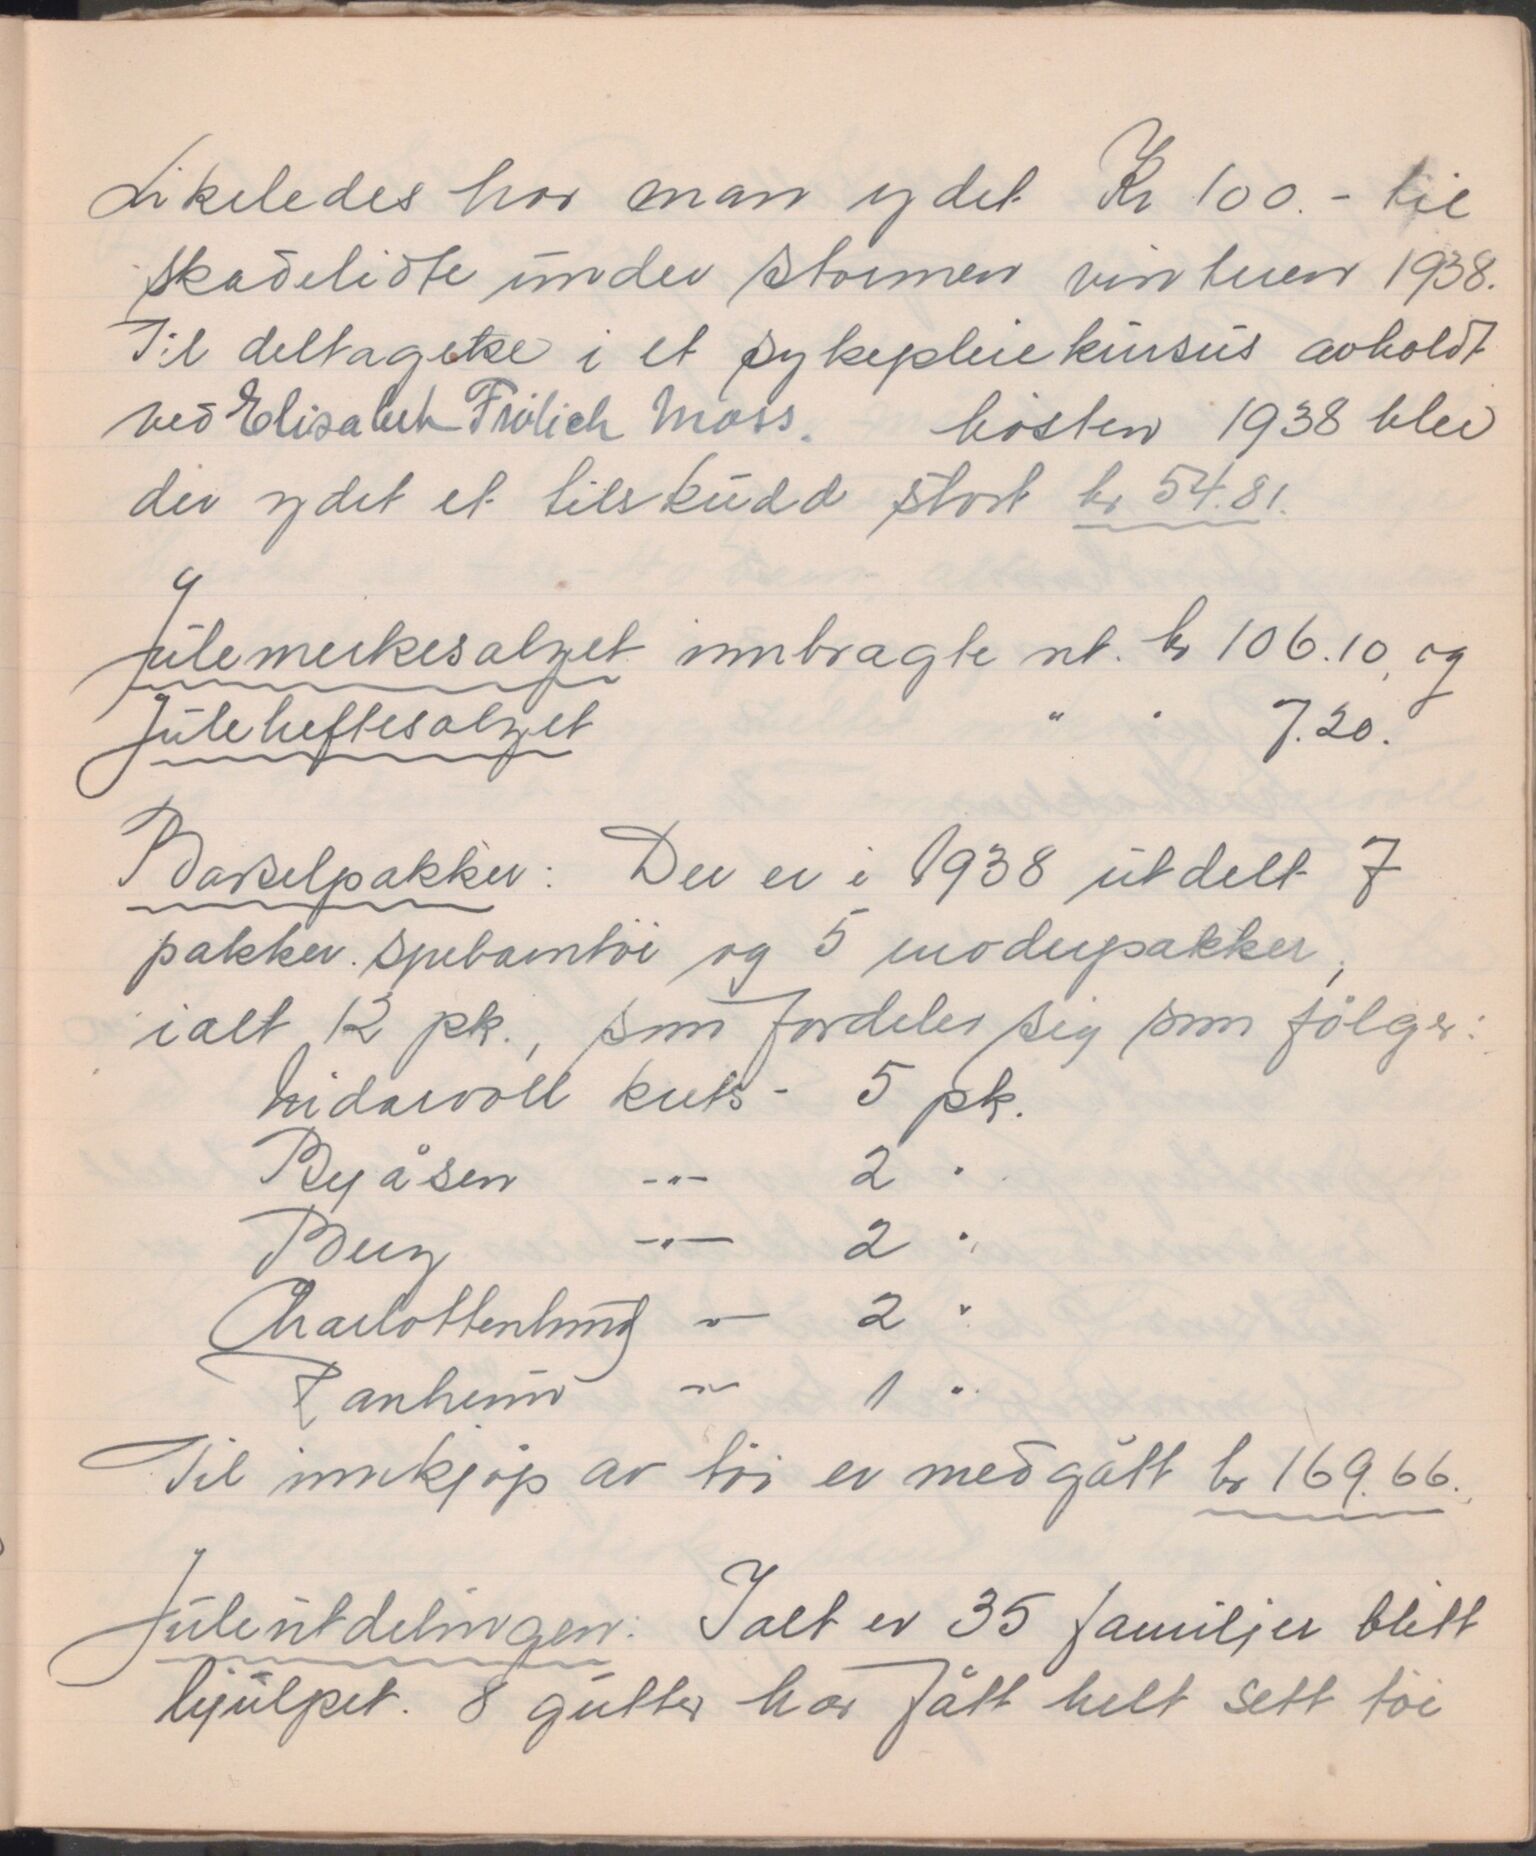 Likeledes har man ydet Kr 100.- til
skadelidte under stormen vinteren 1938.
Til deltagelse i et sykepleiekursus avholdt
ved Elisabeth Frölich Moss. hösten 1938 blev
der ydet et tilskudd stort kr 54.81.
Julemerkesalget innbragte nt. kr 106.10, og
Juleheftesalget " " 7.20.
Barselpakker: Der er i 1938 utdelt 7
pakker spebarntöi og 5 moderpakker,
ialt 12 pk., som fordeler sig som fölger:
Nidarvoll krets - 5 pk.
Byåsen -"- 2 "
Berg -"- 2 "
Charlottenlund -"- 2 "
Ranheim -"- 1 "
Til innkjöp av töi er medgått kr 169.66.
Juleutdelingen: Ialt er 35 familjer blitt
hjulpet. 8 gutter har fått helt sett töi